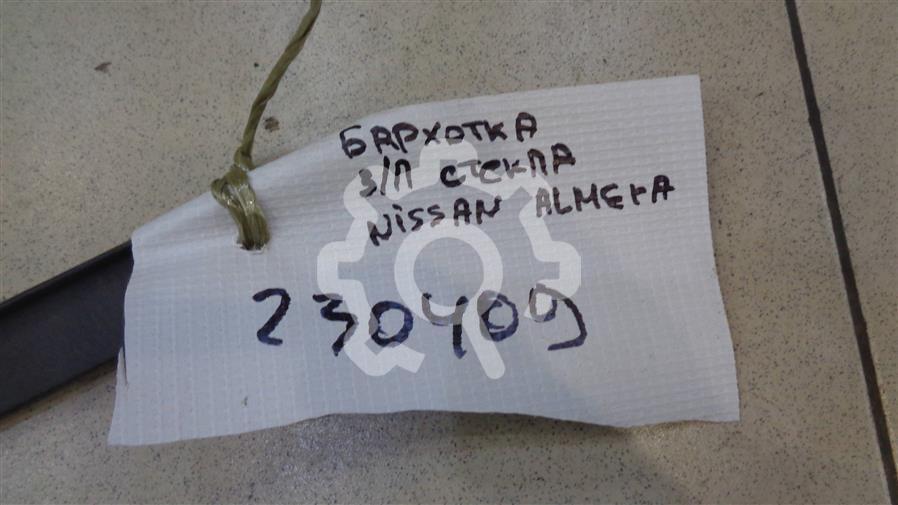 БАРХОТКА
З/П СТЕКЛА
NISSAN ALMERA
230409